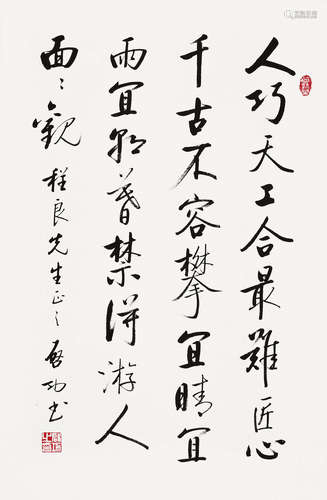 人巧天工合最難匠心
千古不容攀宜晴宜
雨宜朝暮禁得游人
面々觀 程良先生正之 启功书